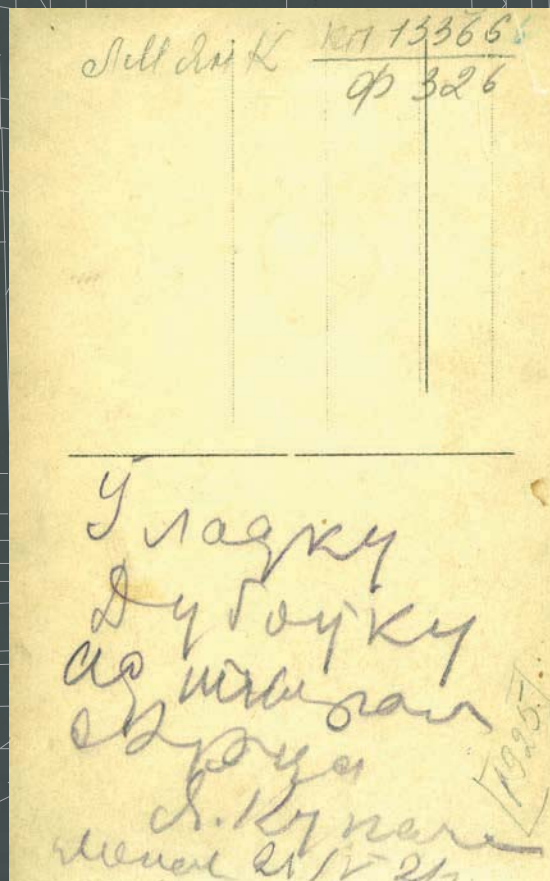 КП 13366
Ф 326
Уладку
Дубоўку
ад шчырага
сэрца
Я. Купала
Менск 21/IV
1925